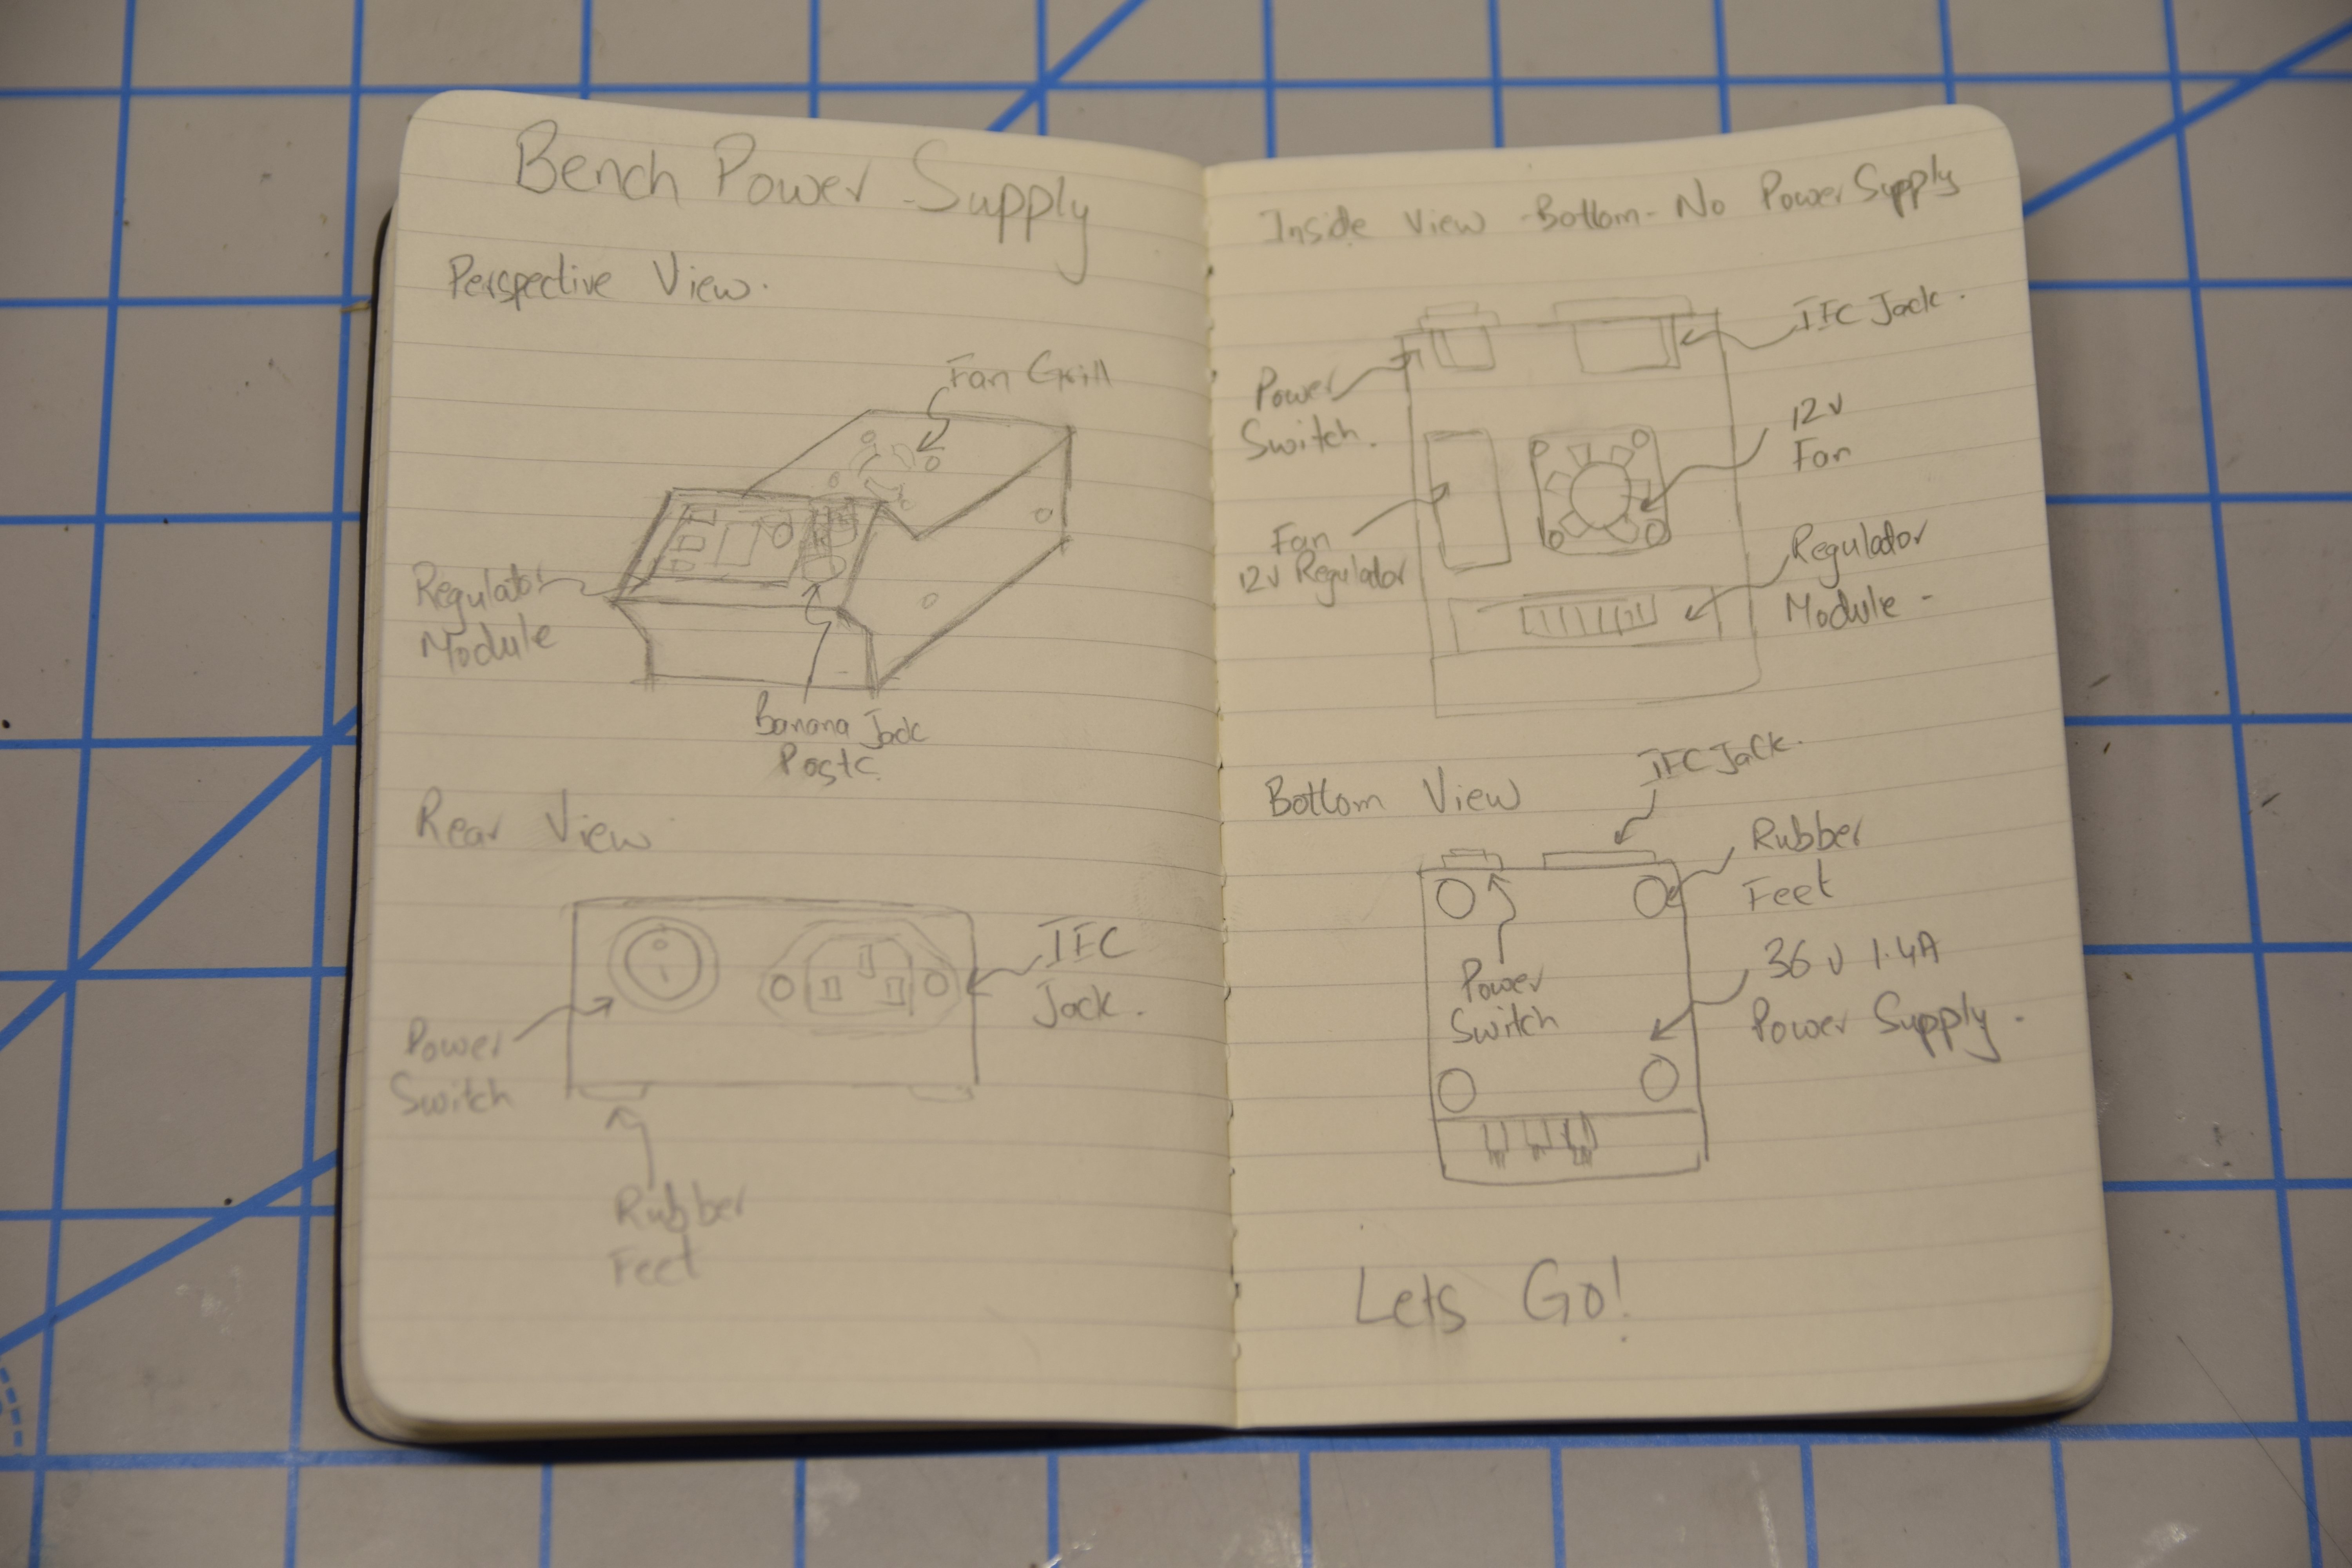 Bench Power Supply
Perspective View.
Fan Grill
Regulator
Module
Banana Jack
Posts
Rear View
IEC
Jack.
Power
Switch
Rubber
Feet
Inside View -Bottom- No Power Supply
IEC Jack.
Power
Switch.
12v
Fan
Fan
12v Regulator
Regulator
Module -
Bottom View
IEC Jack.
Rubber
Feet
Power
Switch
36v 1.4A
Power Supply.
Lets Go!